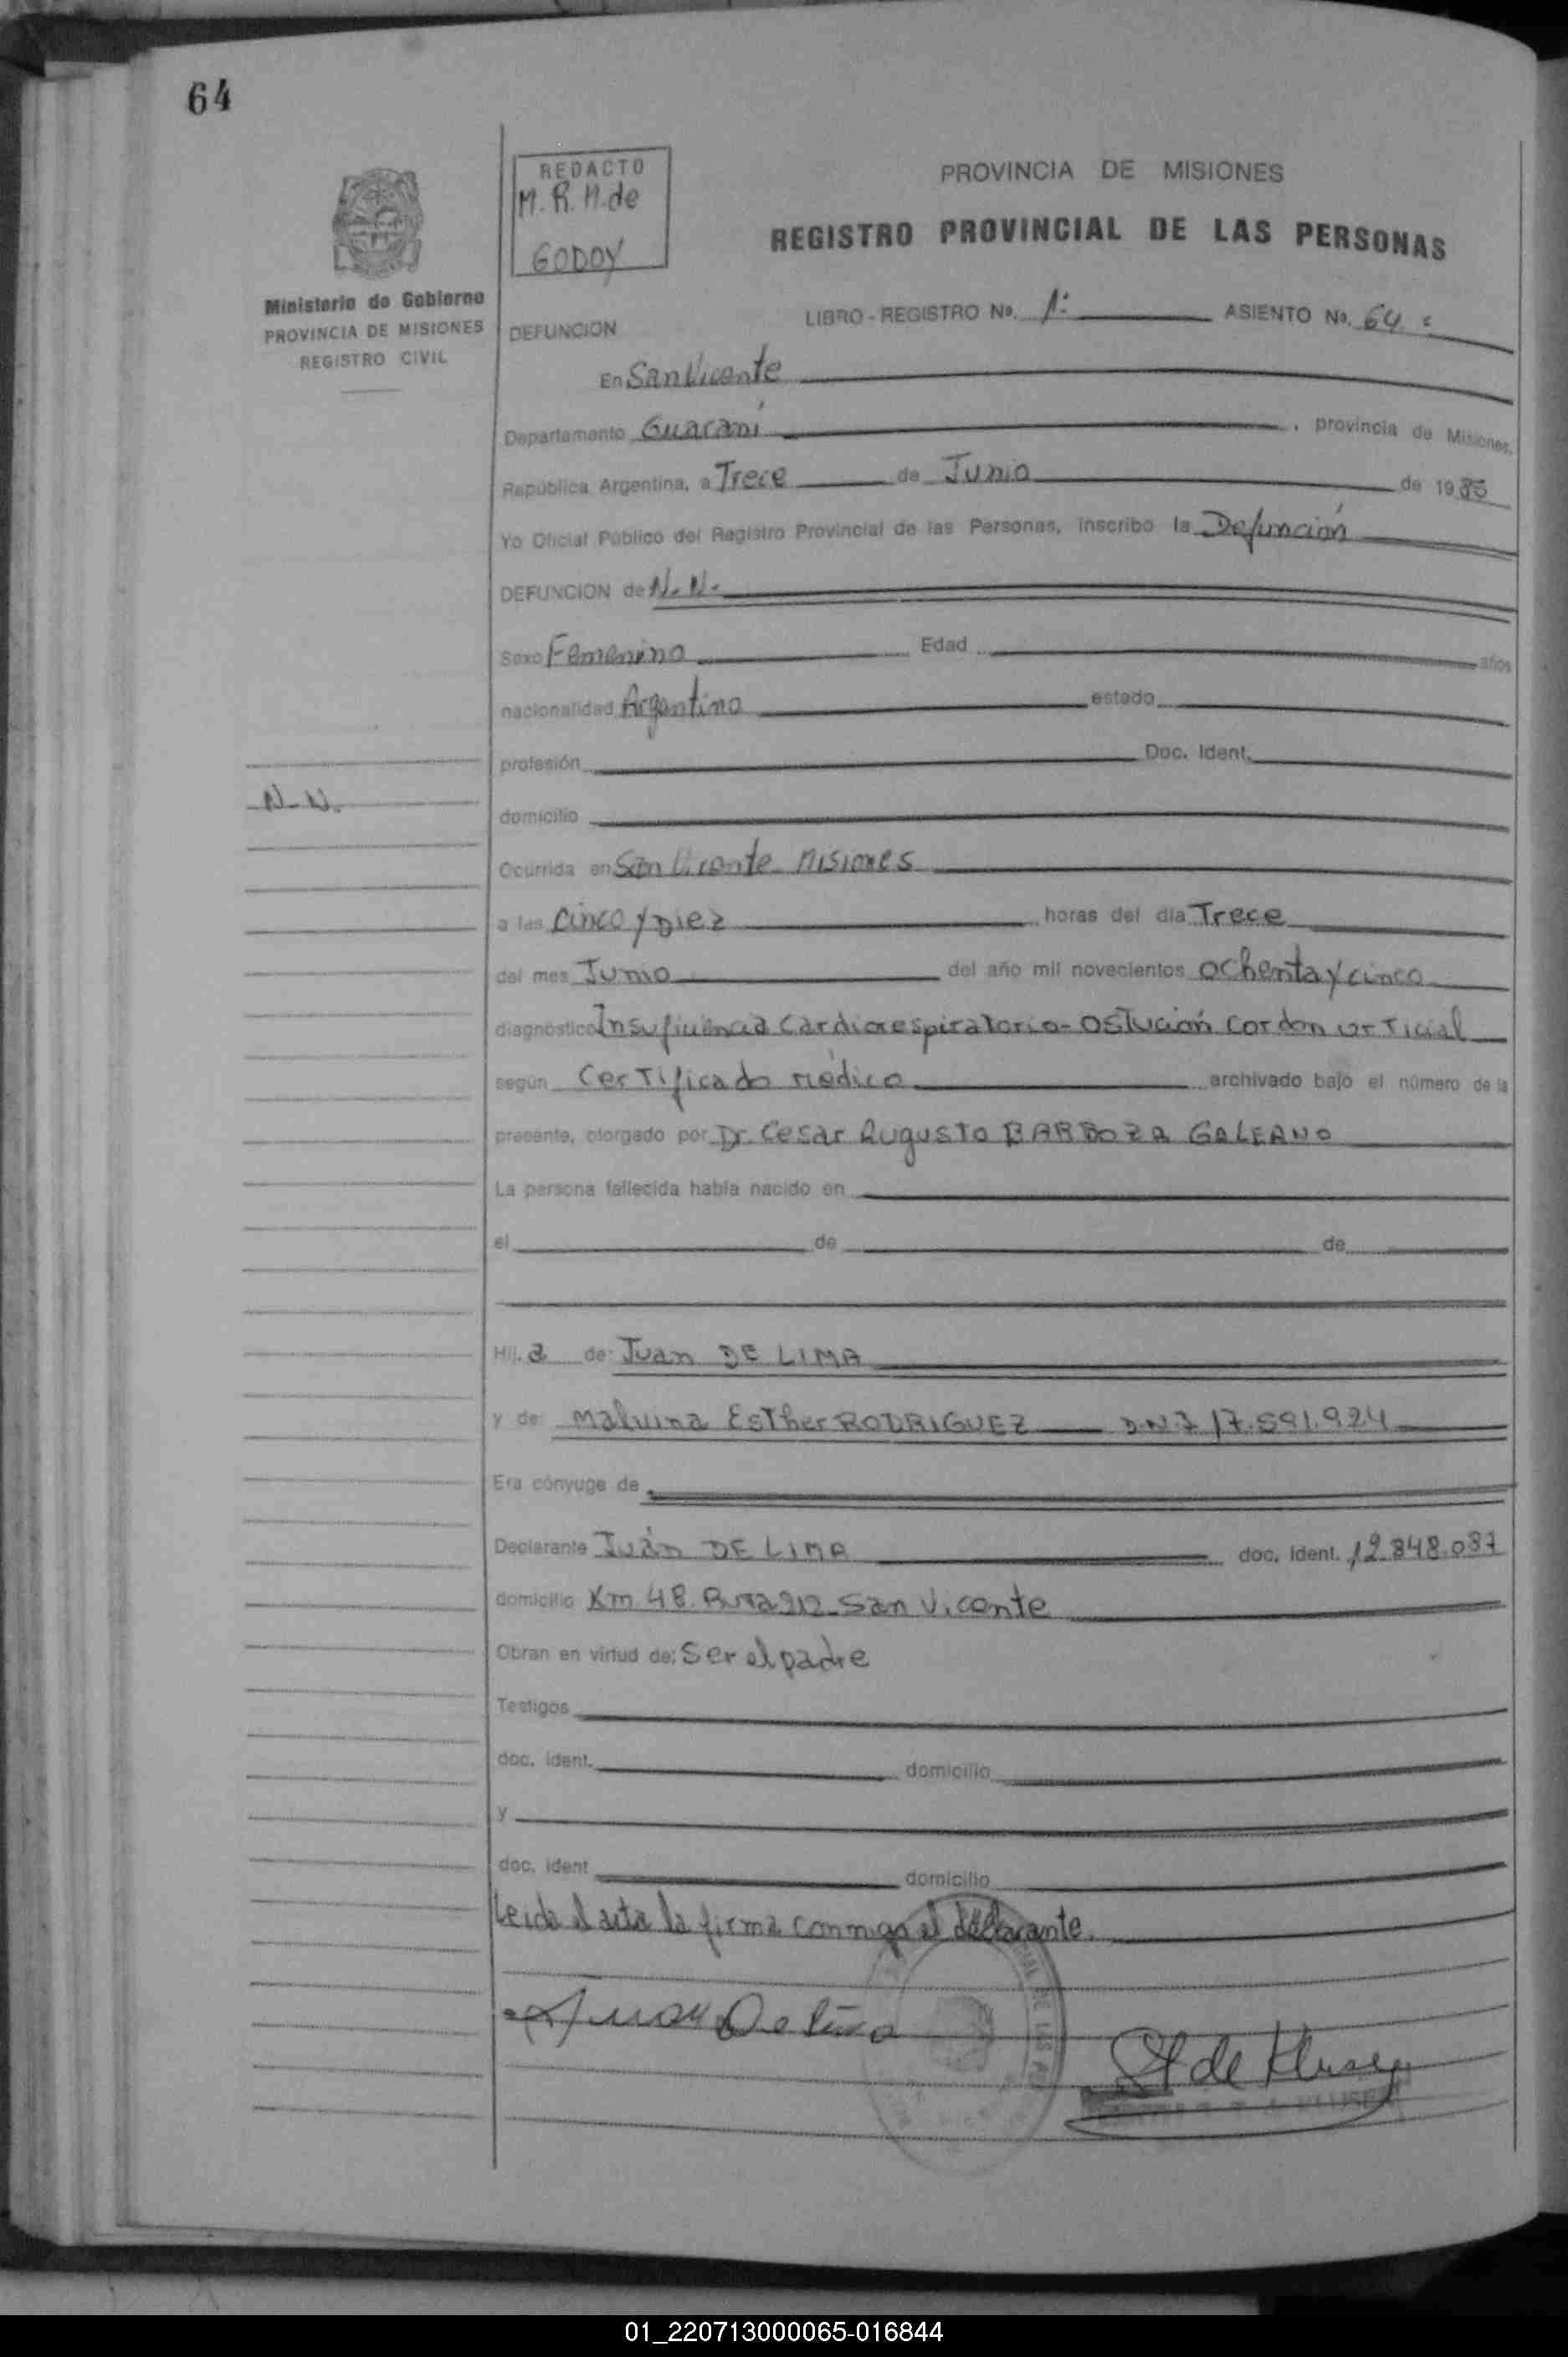 64
REDACTO
M. R. M. de
GODOY
PROVINCIA DE MISIONES
REGISTRO PROVINCIAL DE LAS PERSONAS
Ministerio de Gobierno
PROVINCIA DE MISIONES
REGISTRO CIVIL
DEFUNCION
LIBRO - REGISTRO No. 1: ASIENTO No. 64
En San Vicente
Departamento Guaraní, provincia de Misiones,
República Argentina, a Trece de Junio de 1985
Yo Oficial Público del Registro Provincial de las Personas, inscribo la Defunción
DEFUNCION de N. N.
Sexo Femenino Edad años
nacionalidad Argentina estado
profesión Doc. Ident.
N. N.
domicilio
Ocurrida en San Vicente Misiones
a las Cinco y Diez horas del día Trece
del mes Junio del año mil novecientos Ochenta y cinco
diagnóstico Insuficiencia Cardiorespiratoria - Ostución Cordon
según Certificado Médico archivado bajo el número de la
presente, otorgado por Dr. Cesar Augusto BARBOZA GALEANO
La persona fallecida había nacido en
el de de
Hij.a de: Juan DE LIMA
y de: Malvina Esther RODRIGUEZ D.N.I 17.591.924
Era cónyuge de
Declarante Juán DE LIMA doc. ident. 12.848.087
domicilio Km. 48. Ruta 212 San Vicente
Obran en virtud de: Ser el padre
Testigos
doc. ident. domicilio
y
doc. ident domicilio
Leida el acta la firma conmigo el declarante.
Juan De Lima
de Kluse
01_220713000065-016844